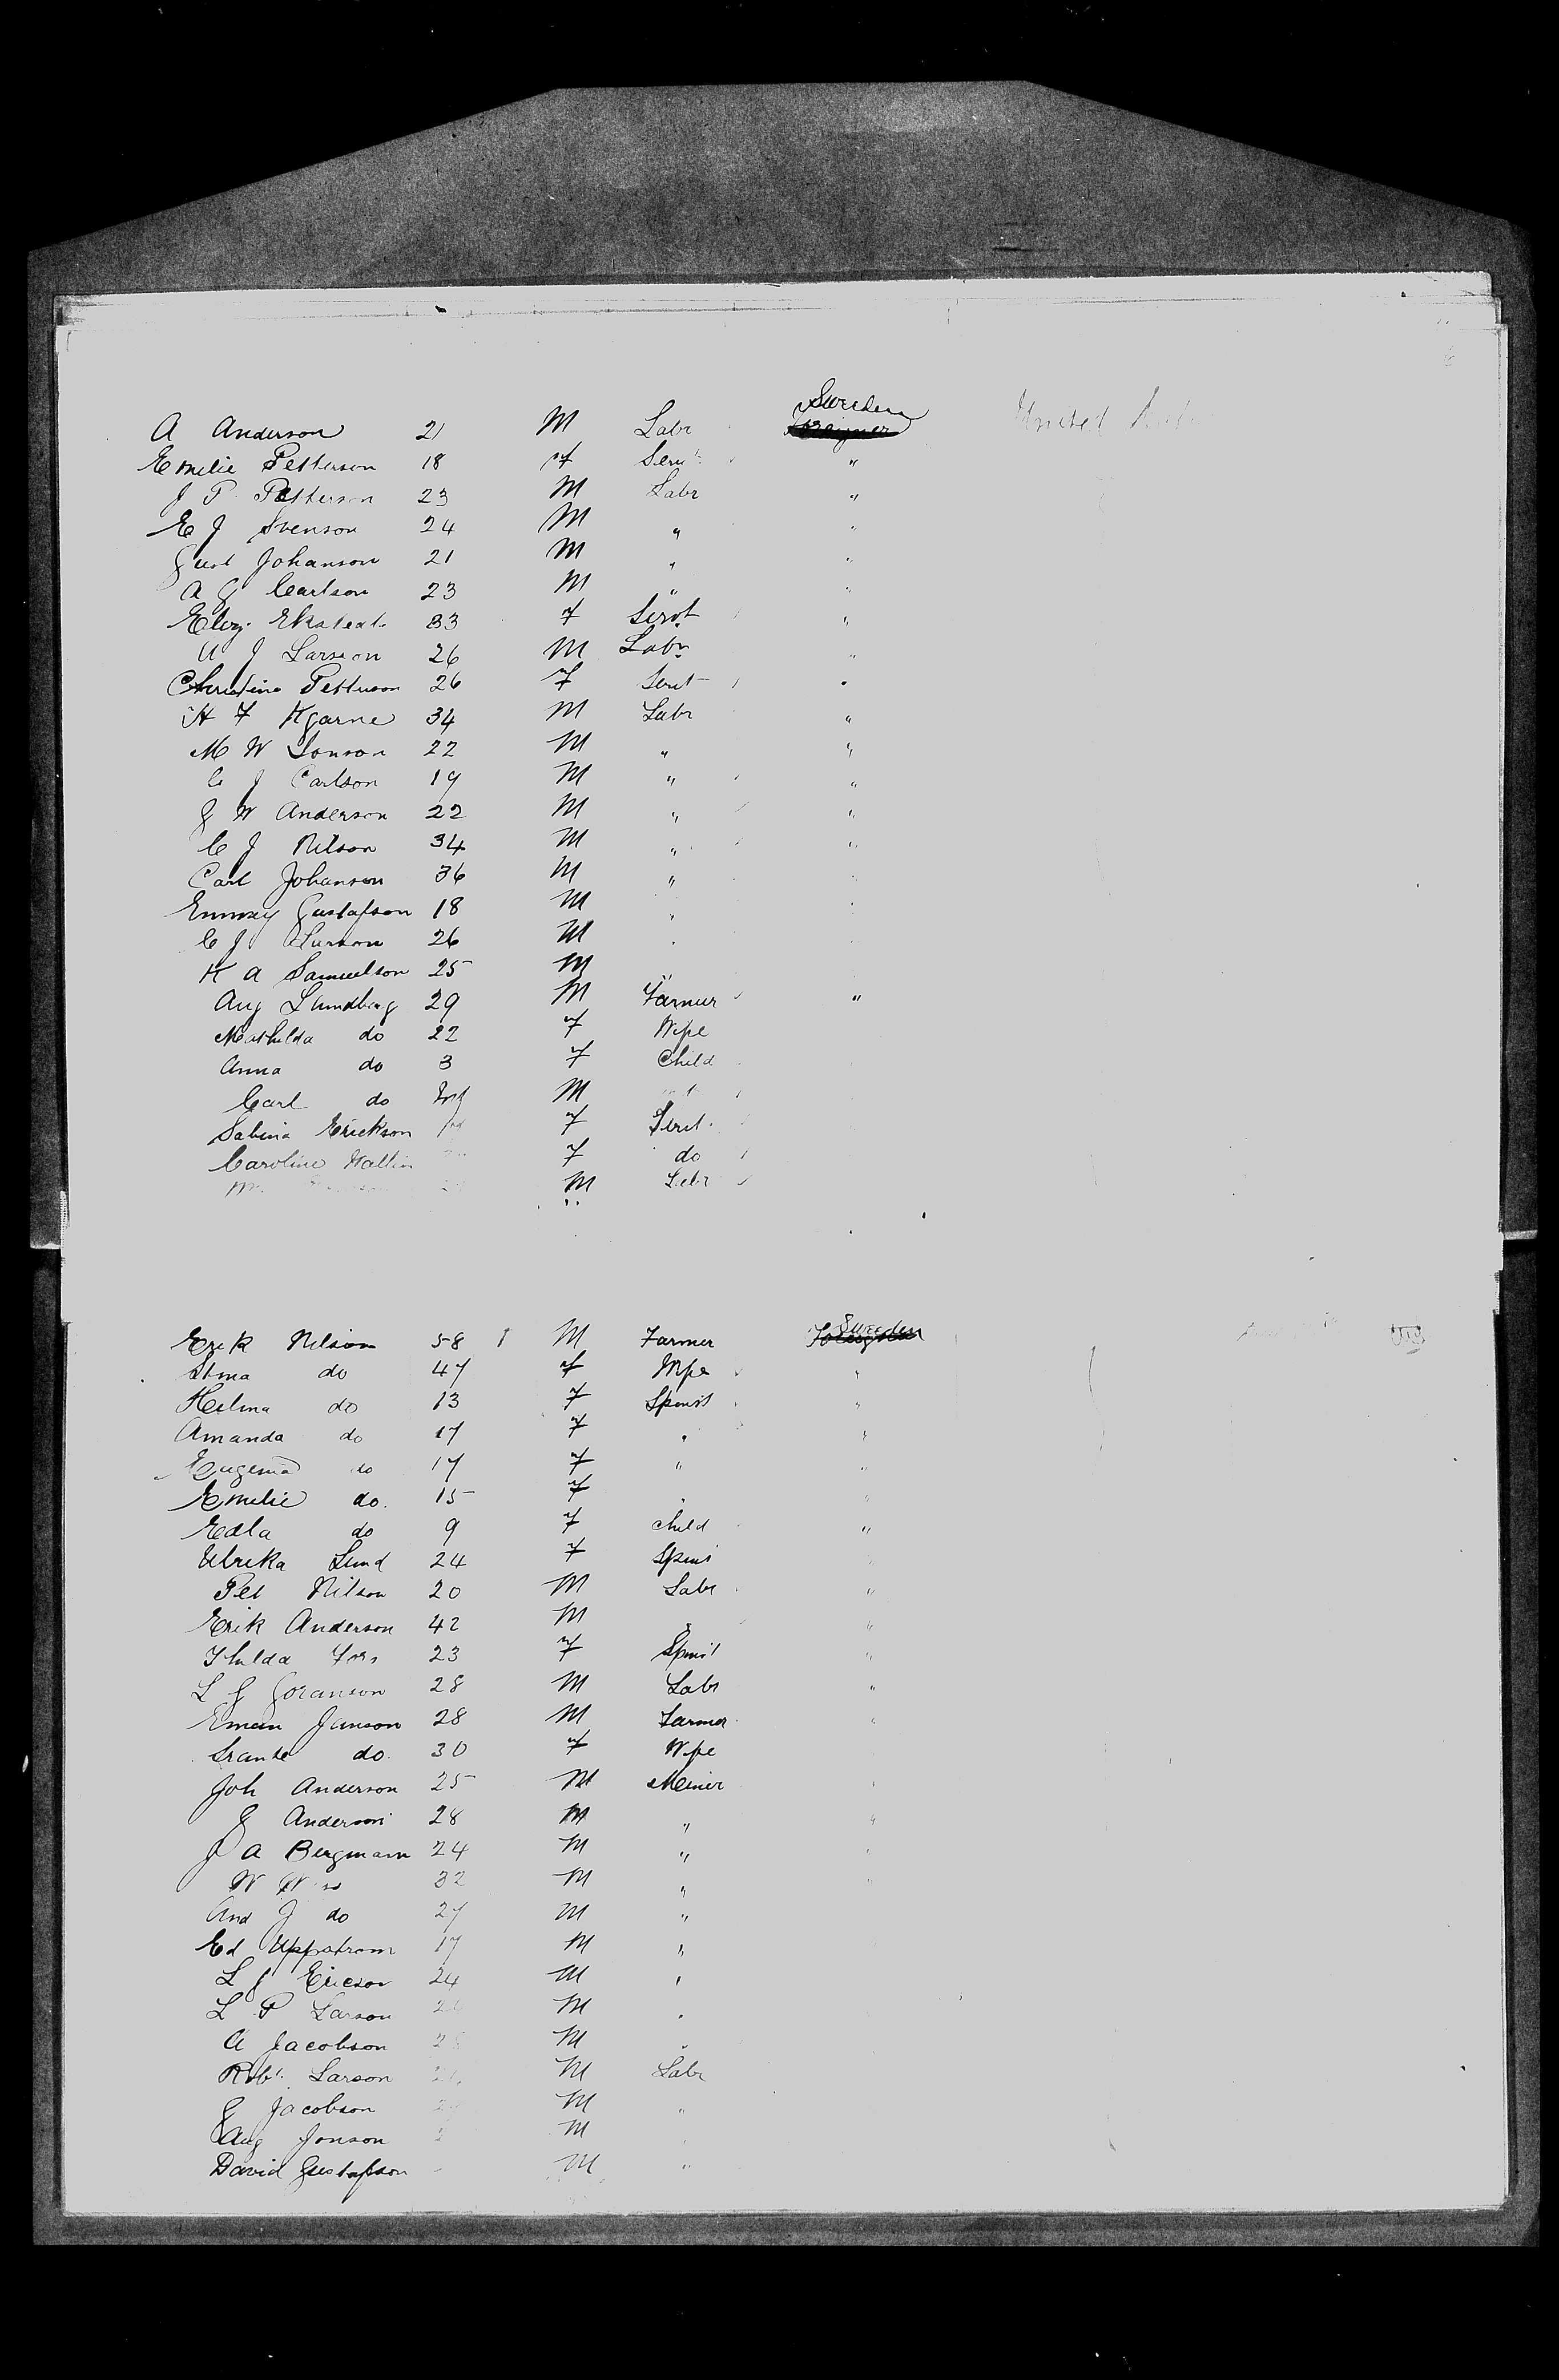 A Anderson 21 M Labr Sweden United
Emilie Petterson 18 f Servt "
J P Petterson 23 M Labr "
E J Svenson 24 M " "
Gust Johanson 21 M " "
A G Carlson 23 M " "
Eliz. Ekstedt 33 f Servt "
A J Larson 26 M Labr "
Christina Petterson 26 f Servt "
H F Kgarne 34 M Labr "
M W Jonson 22 M " "
C J Carlson 19 M " "
G W Anderson 22 M " "
C J Nilson 34 M " "
Carl Johanson 36 M " "
Emmy Gustafson 18 M " "
C J Larson 26 M "
K A Samuelson 25 M "
Aug Lundberg 29 M Farmer "
Mathilda do 22 f Wife
Anna do 3 f Child
Carl do Inf M
Sabina Erickson f Servt
Caroline Wallin f do
M Labr
Erik Nilson 58 1 M Farmer Sweden
Stina do 47 f Wife "
Helma do 13 f Spinst "
Amanda do 17 f " "
Eugenia do 17 f " "
Emelie do. 15 f " "
Edla do 9 f child "
Ulrika Lund 24 f Spins "
Pet Nilson 20 M Labr "
Erik Anderson 42 M " "
Thilda Fors 23 f Spinst "
L G Goranson 28 M Labr "
Eman Janson 28 M Farmer "
do. 30 f Wife
Joh Anderson 25 M Meiner "
G Anderson 28 M " "
J A Bergmann 24 M " "
W 32 M " "
And J do 27 M "
Ed Uppstrom 17 M "
L J Ericson 24 M "
L P Larson M "
A Jacobson M "
Robt. Larson M Labr
G Jacobson M "
Aug Jonson M "
David Gustafson M "